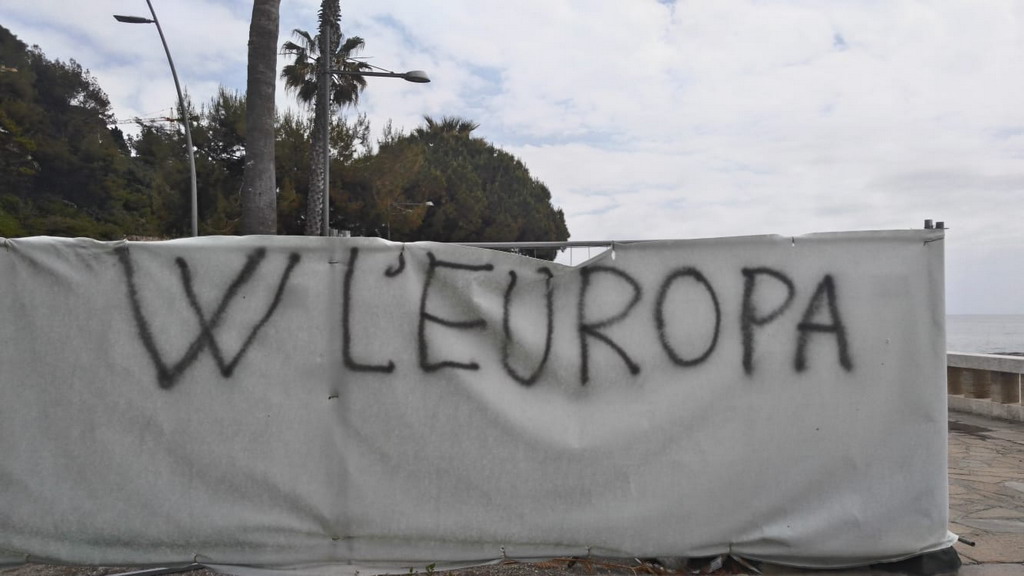 W L'EUROPA